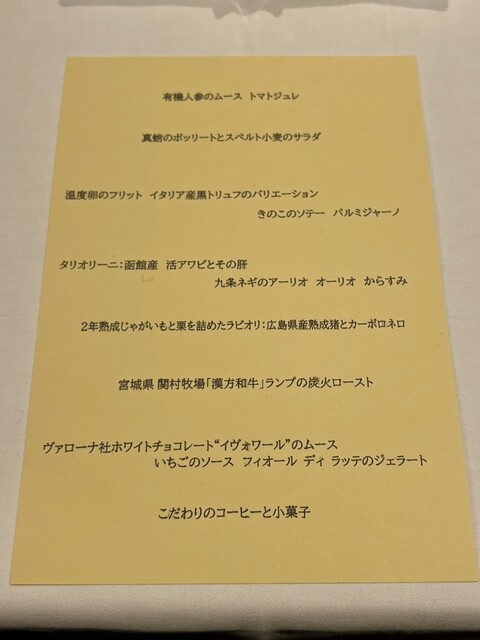 有機人参のムース トマトジュレ
真蛸のボッリートとスペルト小麦のサラダ
温度卵のフリット イタリア産黒トリュフのバリエーション
きのこのソテー パルミジャーノ
タリオリーニ:函館産 活アワビとその肝
九条ネギのアーリオ オーリオ からすみ
2年熟成じゃがいもと栗を詰めたラビオリ:広島県産熟成猪とカーボロネロ
宮城県 関村牧場「漢方和牛」ランプの炭火ロースト
ヴァローナ社ホワイトチョコレート“イヴォワール”のムース
いちごのソース フィオール ディ ラッテのジェラート
こだわりのコーヒーと小菓子